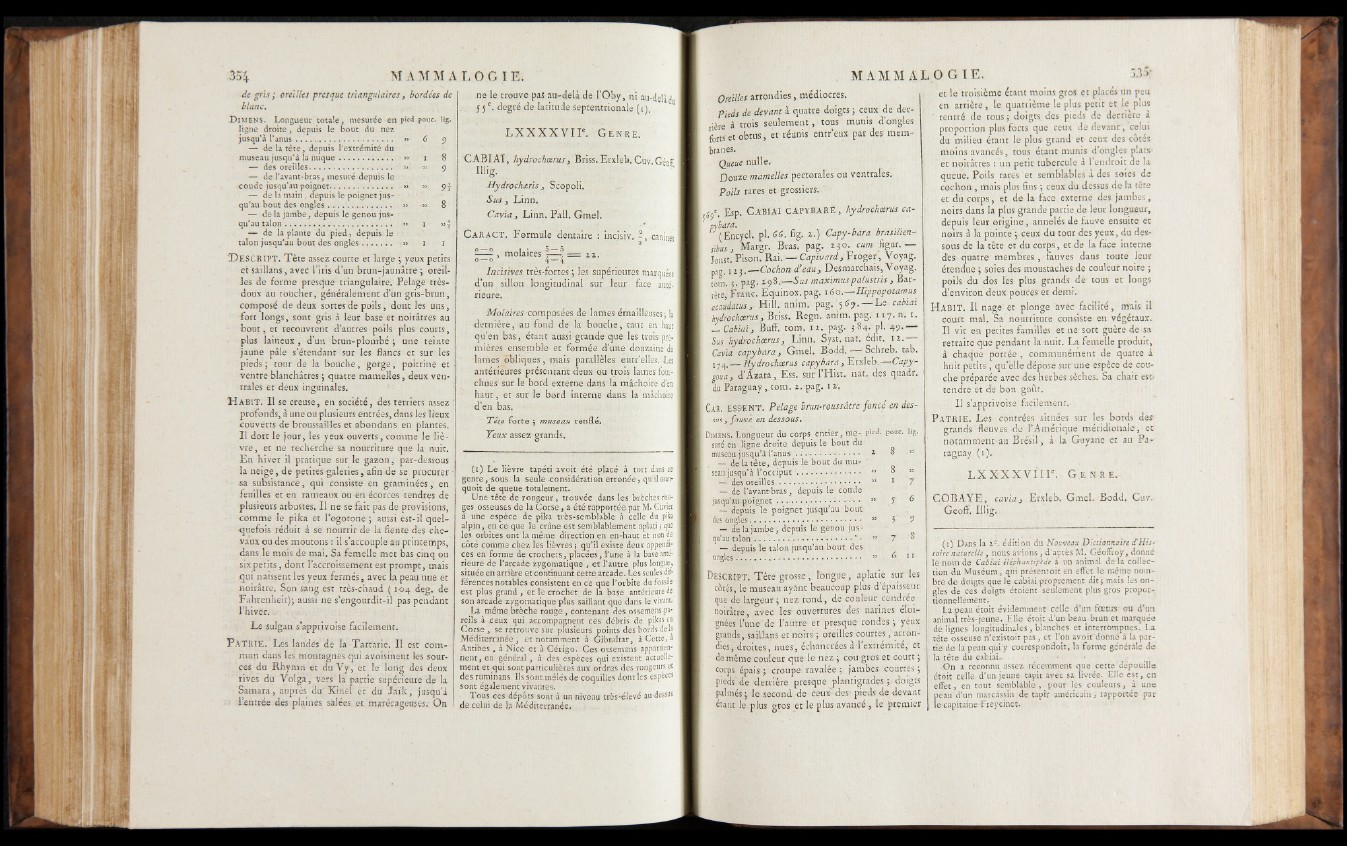 354 MAMMALOGIE.
de gris ; oreilles presque triangulaires, bordées de
blanc.
DIMENS. Longueur totale, mesurée en pied pouc. lig.
ligne droite, depuis le bout du nez
jusqu'à l'anus . . . . . . . . . . » 6 9
— de la tête, depuis l'extrémité du
museau jusqu'à la nuque . . . . . . » 1 8
— des oreilles . . . . . . . . . . » » 9
— de l'avant-bras, mesuré depuis le
coude jusqu'au poignet . . . . . . » » 9½
— de la main, depuis le poignet jus-
qu'au bout des ongles . . . . . . . » » 8
— de la jambe, depuis le genou jus-
qu'au talon . . . . . . . . . . » 1 »½
— de la plante du pied, depuis le
talon jusqu'au bout des ongles . . . » 1 1
DESCRIPT. Tête assez courte et large ; yeux petits
et saillans, avec l'iris d'un brun-jaunâtre ; oreil-
les de forme presque triangulaire. Pelage très-
doux au toucher, généralement d'un gris-brun,
composé de deux sortes de poils, dont les uns,
fort longs, sont gris à leur base et noirâtres au
bout, et recouvrent d'autres poils plus courts,
plus laineux, d'un brun-plombé ; une teinte
jaune pâle s'étendant sur les flancs et sur les
pieds ; tour de la bouche, gorge, poitrine et
ventre blanchâtres ; quatre mamelles, deux ven-
trales et deux inguinales.
HABIT. Il se creuse, en société, des terriers assez
profonds, à une ou plusieurs entrées, dans les lieux
couverts de broussailles et abondans en plantes.
Il dort le jour, les yeux ouverts, comme le liè-
vre, et ne recherche sa nourriture que la nuit.
En hiver il pratique sur le gazon, par-dessous
la neige, de petites galeries, afin de se procurer
sa subsistance, qui consiste en graminées, en
feuilles et en rameaux ou en écorces tendres de
plusieurs arbustes. Il ne se fait pas de provisions,
comme le pika et l'ogotone ; aussi est-il quel-
quefois réduit à se nourrir de la fiente des che-
vaux ou des moutons : il s'accouple au printemps,
dans le mois de mai. Sa femelle met bas cinq ou
six petits, dont l'accroissement est prompt, mais
qui naissent les yeux fermés, avec la peau nue et
noirâtre. Son sang est très-chaud (104 deg. de
Fahrenheit); aussi ne s'engourdit-il pas pendant
l'hiver.
Le sulgan s'apprivoise facilement.
PATRIE. Les landes de la Tartarie. Il est com-
mun dans les montagnes qui avoisinent les sour-
ces du Rhymn et du Vy, et le long des deux
rives du Volga, vers la partie supérieure de la
Samara, auprès du Kinel et du Jaïk, jusqu'à
l'entrée des plaines salées et marécageuses. On
ne le trouve pas au-delà de l'Oby, ni au-delà du
55e. degré de latitude septentrionale (1).
LXXXXVIIe. GENRE.
CABIAI, hydrochœrus, Briss. Erxleb. Cuv. Geoff.
Illig.
Hydrochæris, Scopoli.
Sus, Linn.
Cavia, Linn. Pall. Gmel.
CARACT. Formule dentaire : incisiv. 2/2, canines
0—0/0—0, molaires 5—5/4—4 = 22.
Incisives très-fortes ; les supérieures marquées
d'un sillon longitudinal sur leur face anté-
rieure.
Molaires composées de lames émailleuses ; la
dernière, au fond de la bouche, tant en haut
qu'en bas, étant aussi grande que les trois pre-
mières ensemble et formée d'une douzaine de
lames obliques, mais parallèles entr'elles. Les
antérieures présentant deux ou trois lames four-
chues sur le bord externe dans la mâchoire d'en
haut, et sur le bord interne dans la mâchoire
d'en bas.
Tête forte ; museau renflé.
Yeux assez grands.
(1) Le lièvre tapéti avoit été placé à tort dans ce
genre, sous la seule considération erronée, qu'il man-
quoit de queue totalement.
Une tête de rongeur, trouvée dans les brèches rou-
ges osseuses de la Corse, a été rapportée par M. Cuvier
à une espèce de pika très-semblable à celle du pika
alpin, en ce que le crâne est semblablement aplati ; que
les orbites ont la même direction en en-haut et non de
côté comme chez les lièvres ; qu'il existe deux appendi-
ces en forme de crochets, placées, l'une à la base anté-
rieure de l'arcade zygomatique, et l'autre plus longue,
située en arrière et continuant cette arcade. Les seules dif-
férences notables consistent en ce que l'orbite du fossile
est plus grand, et le crochet de la base antérieure de
son arcade zygomatique plus saillant que dans le vivant.
La même brèche rouge, contenant des ossemens pa-
reils à ceux qui accompagnent ces débris de pikas en
Corse, se retrouve sur plusieurs points des bords de la
Méditerranée, et notamment à Gibraltar, à Cette, à
Antibes, à Nice et à Cérigo. Ces ossemens appartien-
nent, en général, à des espèces qui existent actuelle-
ment et qui sont particulières aux ordres des rongeurs et
des ruminans. Ils sont mêlés de coquilles dont les espèces
sont également vivantes.
Tous ces dépôts sont à un niveau très-élevé au dessus
de celui de la Méditerranée.
MAMMALOGIE. 335
Oreilles arrondies, médiocres.
Pieds de devant à quatre doigts ; ceux de der-
rière à trois seulement, tous munis d'ongles
forts et obtus, et réunis entr'eux par des mem-
branes.
Queue nulle.
Douze mamelles pectorales ou ventrales.
Poils rares et grossiers.
569e. Esp. CABIAI CAPYBARE, hydrochœrus ca-
pybara.
(Encycl. pl. 66. fig. 2.) Capy-bara brasilien-
sibus, Margr. Bras. pag. 230. cum figur. —
Jonst. Pison. Rai. — Capivard, Froger, Voyag.
pag. 123. — Cochon d'eau, Desmarchais, Voyag.
tom. 3. pag. 298. — Sus maximus palustris, Bar-
rère, Franc. Equinox. pag. 160. — Hippopotamus
ecaudatus, Hill. anim. pag. 569. — Le cabiai
hydrochœrus, Briss. Regn. anim. pag. 117. n. 1.
— Cabiai, Buff. tom. 12. pag. 384. pl. 49. —
Sus hydrochœrus, Linn. Syst. nat. édit. 12. —
Cavia capybara, Gmel. Bodd. — Schreb. tab.
174. — Hydrochœrus capybara, Erxleb. — Capy-
gova, d'Azara, Ess. sur l'Hist. nat. des quadr.
du Paraguay, tom. 2. pag. 12.
CAR. ESSENT. Pelage brun-roussâtre foncé en des-
sus, fauve en dessous.
DIMENS. Longueur du corps entier, me- pied. pouc. lig.
suré en ligne droite depuis le bout du
museau jusqu'à l'anus . . . . . . . 2 8 »
— de la tête, depuis le bout du mu-
seau jusqu'à l'occiput . . . . . . . » 8 »
— des oreilles . . . . . . . . . . » 1 7
— de l'avant-bras, depuis le coude
jusqu'au poignet . . . . . . . . . » 5 6
— depuis le poignet jusqu'au bout
des ongles . . . . . . . . . . . » 3 9
— de la jambe, depuis le genou jus-
qu'au talon . . . . . . . . . . » 7 8
— depuis le talon jusqu'au bout des
ongles . . . . . . . . . . . . . » 6 11
DESCRIPT. Tête grosse, longue, aplatie sur les
côtés, le museau ayant beaucoup plus d'épaisseur
que de largeur ; nez rond, de couleur cendrée
noirâtre, avec les ouvertures des narines éloi-
gnées l'une de l'autre et presque rondes ; yeux
grands, saillans et noirs ; oreilles courtes, arron-
dies, droites, nues, échancrées à l'extrémité, et
de même couleur que le nez ; cou gros et court ;
corps épais ; croupe ravalée ; jambes courtes ;
pieds de derrière presque plantigrades ; doigts
palmés ; le second de ceux des pieds de devant
étant le plus gros et le plus avancé, le premier
et le troisième étant moins gros et placés un peu
en arrière, le quatrième le plus petit et le plus
rentré de tous ; doigts des pieds de derrière à
proportion plus forts que ceux de devant, celui
du milieu étant le plus grand et ceux des côtés
moins avancés, tous étant munis d'ongles plats
et noirâtres : un petit tubercule à l'endroit de la
queue. Poils rares et semblables à des soies de
cochon, mais plus fins ; ceux du dessus de la tête
et du corps, et de la face externe des jambes,
noirs dans la plus grande partie de leur longueur,
depuis leur origine, annelés de fauve ensuite et
noirs à la pointe ; ceux du tour des yeux, du des-
sous de la tête et du corps, et de la face interne
des quatre membres, fauves dans toute leur
étendue ; soies des moustaches de couleur noire ;
poils du dos les plus grands de tous et longs
d'environ deux pouces et demi.
HABIT. Il nage et plonge avec facilité, mais il
court mal. Sa nourriture consiste en végétaux.
Il vit en petites familles et ne sort guère de sa
retraite que pendant la nuit. La femelle produit,
à chaque portée, communément de quatre à
huit petits, qu'elle dépose sur une espèce de cou-
che préparée avec des herbes sèches. Sa chair est
tendre et de bon goût.
Il s'apprivoise facilement.
PATRIE. Les contrées situées sur les bords des
grands fleuves de l'Amérique méridionale, et
notamment au Brésil, à la Guyane et au Pa-
raguay (1).
LXXXXVIIIe. GENRE.
COBAYE, cavia, Erxleb. Gmel. Bodd. Cuv.
Geoff. Illig.
(1) Dans la 2e. édition du Nouveau Dictionnaire d'His-
toire naturelle, nous avions, d'après M. Geoffroy, donné
le nom de Cabiai éléphantipède à un animal de la collec-
tion du Muséum, qui présentoit en effet le même nom-
bre de doigts que le cabiai proprement dit ; mais les on-
gles de ces doigts étoient seulement plus gros propor-
tionnellement.
La peau étoit évidemment celle d'un fœtus ou d'un
animal très-jeune. Elle étoit d'un beau brun et marquée
de lignes longitudinales, blanches et interrompues. La
tête osseuse n'existoit pas, et l'on avoit donné à la par-
tie de la peau qui y correspondoit, la forme générale de
la tête du cabiai.
On a reconnu assez récemment que cette dépouille
étoit celle d'un jeune tapir avec sa livrée. Elle est, en
effet, en tout semblable, pour les couleurs, à une
peau d'un marcassin de tapir américain, rapportée par
le capitaine Freycinet.